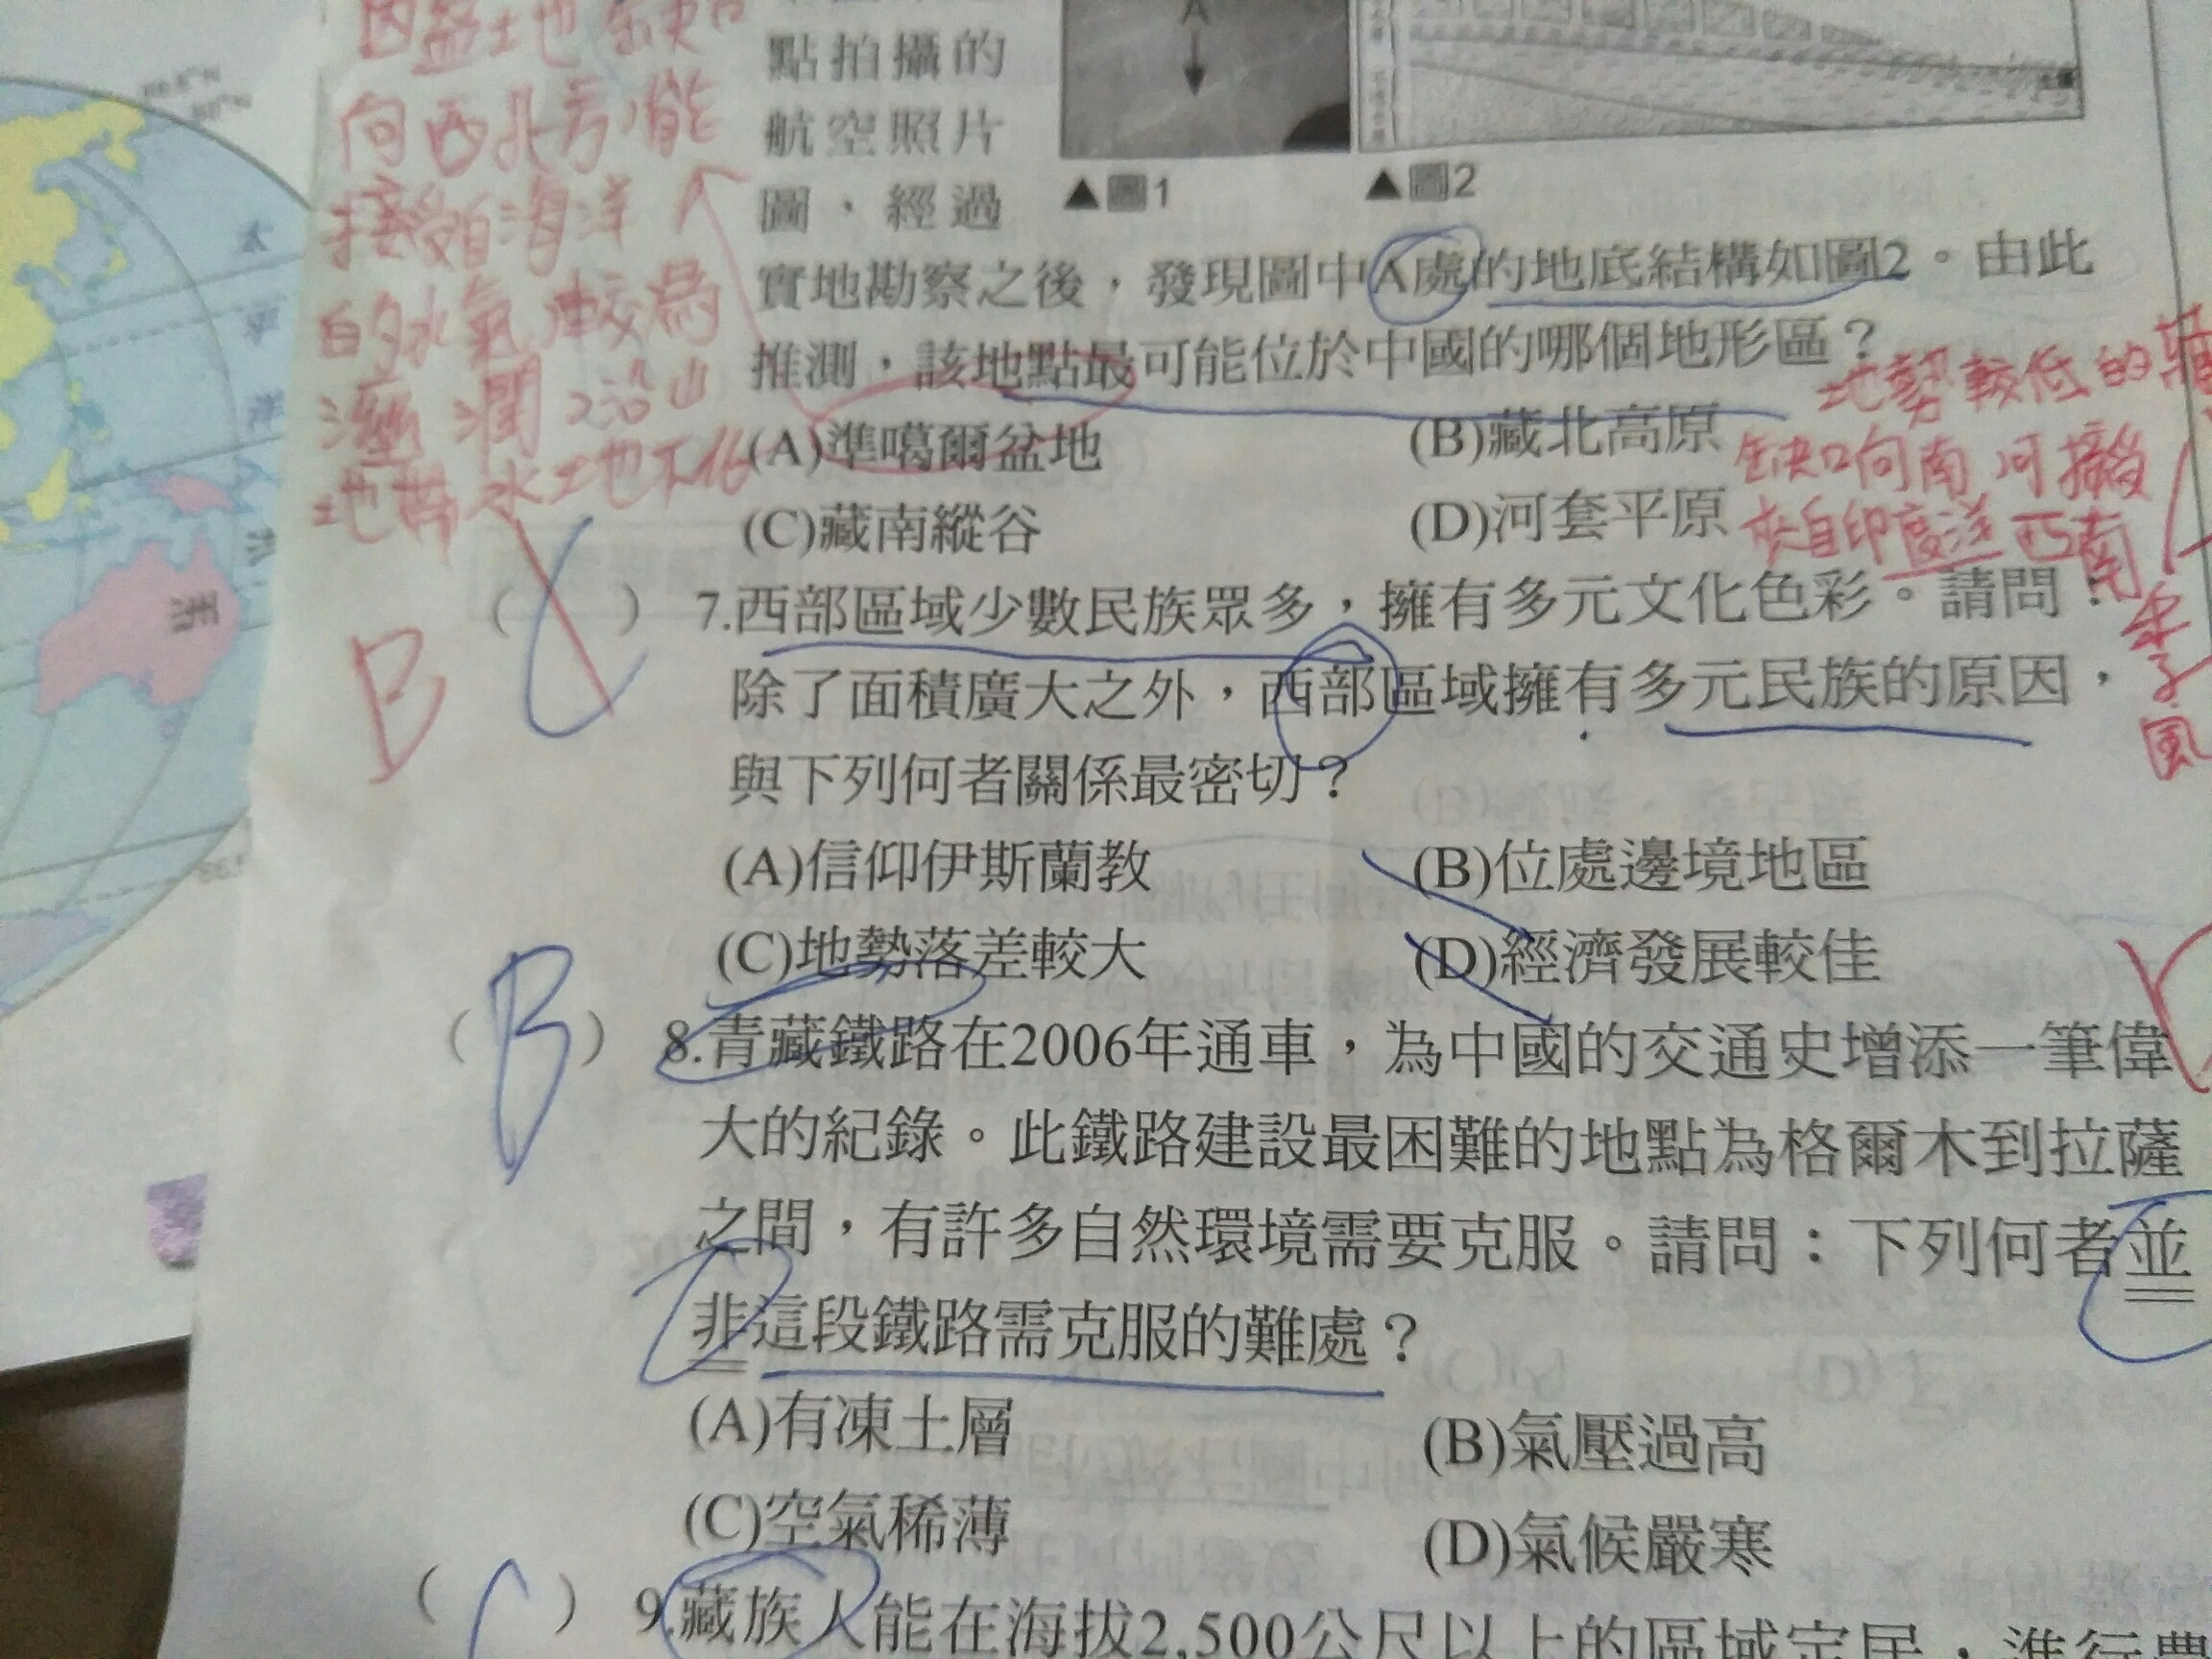 向西北方,能
接受自海洋
的水氣,較為
濕潤,沿山
地帶水土也不化
點拍攝的
航空照片
圖,經過
A
▲圖1
▲圖2
實地勘察之後,發現圖中A處的地底結構如圖2。由此
推測,該地點最可能位於中國的哪個地形區?
(A)準噶爾盆地
(B)藏北高原
(C)藏南縱谷
(D)河套平原
地勢較低的
缺口向南 可接受
來自印度洋西南
季風
B
( C ) 7.西部區域少數民族眾多,擁有多元文化色彩。請問:
除了面積廣大之外,西部區域擁有多元民族的原因,
與下列何者關係最密切?
(A)信仰伊斯蘭教
(B)位處邊境地區
(C)地勢落差較大
(D)經濟發展較佳
( B ) 8.青藏鐵路在2006年通車,為中國的交通史增添一筆偉
大的紀錄。此鐵路建設最困難的地點為格爾木到拉薩
之間,有許多自然環境需要克服。請問:下列何者並
非這段鐵路需克服的難處?
(A)有凍土層
(B)氣壓過高
(C)空氣稀薄
(D)氣候嚴寒
( ) 9.藏族人能在海拔2,500公尺以上的區域定居,進行農
太
平
洋